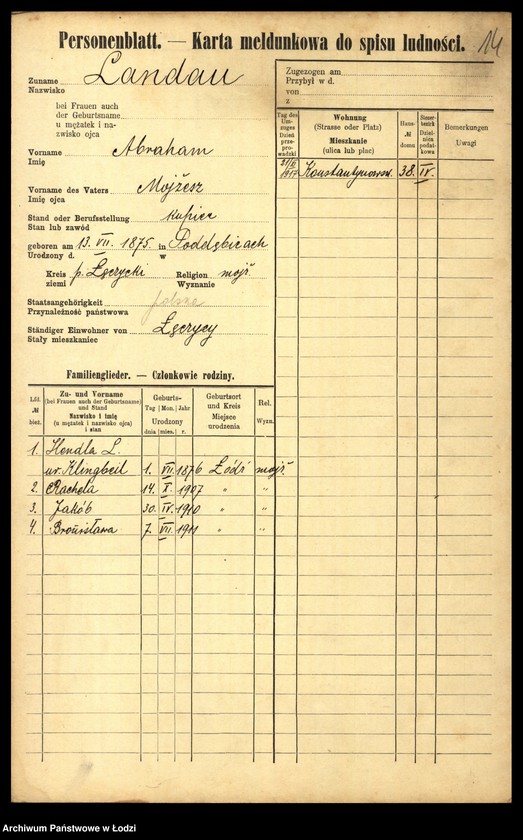 Personenblatt. — Karta meldunkowa do spisu ludności.
14
Zuname Landau
Nazwisko
bei Frauen auch
der Geburtsname
u mężatek i na-
zwisko ojca
Vorname Abraham
Imię
Vorname des Vaters Mojżesz
Imię ojca
Stand oder Berufsstellung kupiec
Stan lub zawód
geboren am 13. VII. 1875. in Poddębicach
Urodzony d. w
Kreis p. Łęczycki Religion mojż
ziemi Wyznanie
Staatsangehörigkeit
Przynależność państwowa
Ständiger Einwohner von Łęczycy
Stały mieszkaniec
Zugezogen am
Przybył w d.
von
z
Tag des Um-zuges
Dzień prze-pro-wadzki
Wohnung
(Strasse oder Platz)
Mieszkanie
(ulica lub plac)
Haus-
№
domu
Steuer-bezirk
Dziel-nica podat-kowa
Bemerkungen
Uwagi
1917 Konstantynowsk. 38. IV.
Familienglieder. — Członkowie rodziny.
Lfd.
№
bież.
Zu- und Vorname
(bei Frauen auch der Geburtsname)
und Stand
Nazwisko i imię
(u mężatek i nazwisko ojca)
i stan
Geburts-
Tag | Mon. | Jahr
Urodzony
dnia | mies. | r.
Geburtsort
und Kreis
Miejsce
urodzenia
Rel.
Wyzn.
1. Hendla L.
ur. Klingbeil 1. VII. 1876 Łódź mojż.
2. Rachela 14. X. 1907 " "
3. Jakób 30. IV. 1910 " "
4. Bronisława 7. VII. 1911 " "
Archiwum Państwowe w Łodzi